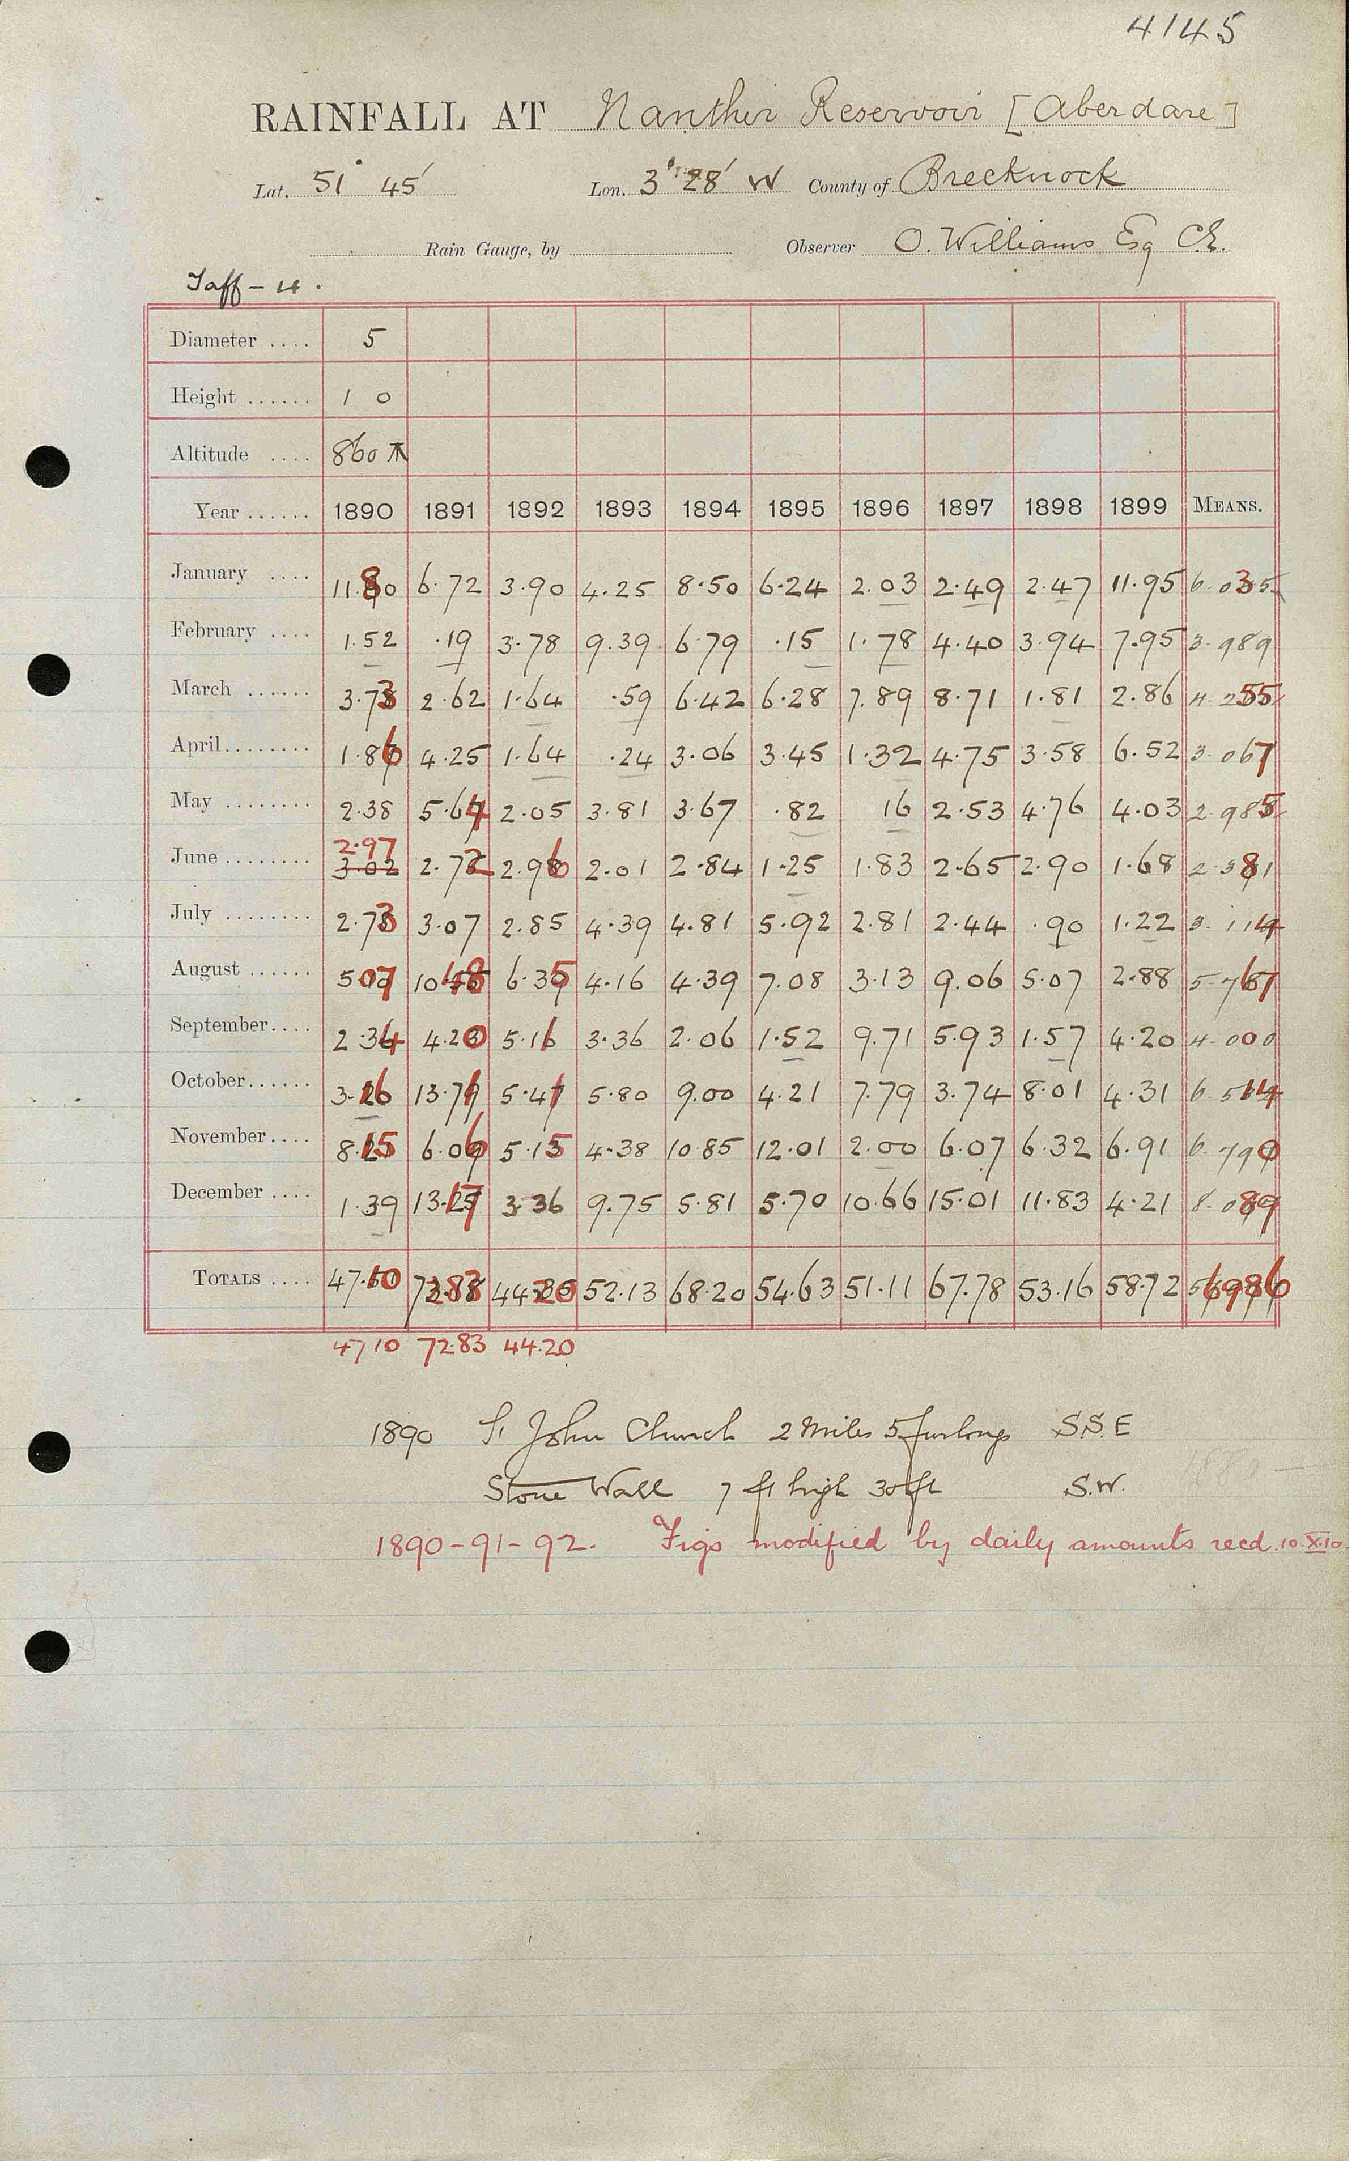 4145
RAINFALL AT Nanthir Reservoir [Aberdare]
Lat. 51° 45′ Lon. 3° 28′ W County of Brecknock
Rain Gauge, by Observer O. Williams Esq C.E.
Taff - 14.
Diameter .... 5
Height ...... 1 0
Altitude .... 860
Year ...... 1890 1891 1892 1893 1894 1895 1896 1897 1898 1899 MEANS.
January .... 11.80 6.72 3.90 4.25 8.50 6.24 2.03 2.49 2.47 11.95 6.035
February .... 1.52 .19 3.78 9.39 6.79 .15 1.78 4.40 3.94 7.95 3.989
March ...... 3.73 2.62 1.64 .59 6.42 6.28 7.89 8.71 1.81 2.86 4.255
April........ 1.86 4.25 1.64 .24 3.06 3.45 1.32 4.75 3.58 6.52 3.067
May ........ 2.38 5.64 2.05 3.81 3.67 .82 16 2.53 4.76 4.03 2.985
2.97
June ........ 3.02 2.72 2.96 2.01 2.84 1.25 1.83 2.65 2.90 1.68 2.381
July ........ 2.73 3.07 2.85 4.39 4.81 5.92 2.81 2.44 .90 1.22 3.114
August ...... 5.07 10.48 6.35 4.16 4.39 7.08 3.13 9.06 5.07 2.88 5.767
September.... 2.34 4.20 5.11 3.36 2.06 1.52 9.71 5.93 1.57 4.20 4.000
October...... 3.16 13.71 5.41 5.80 9.00 4.21 7.79 3.74 8.01 4.31 6.514
November.... 8.15 6.06 5.15 4.38 10.85 12.01 2.00 6.07 6.32 6.91 6.790
December .... 1.39 13.17 3.36 9.75 5.81 5.70 10.66 15.01 11.83 4.21 8.089
TOTALS .... 47.10 72.83 44.20 52.13 68.20 54.63 51.11 67.78 53.16 58.72 56.986
47.10 72.83 44.20
1890 St John Church 2 Miles 5 furlongs S.S.E
Stone Wall 7 ft high 30 ft S.W.
1890-91-92. Figs modified by daily amounts recd. 10.X.10.